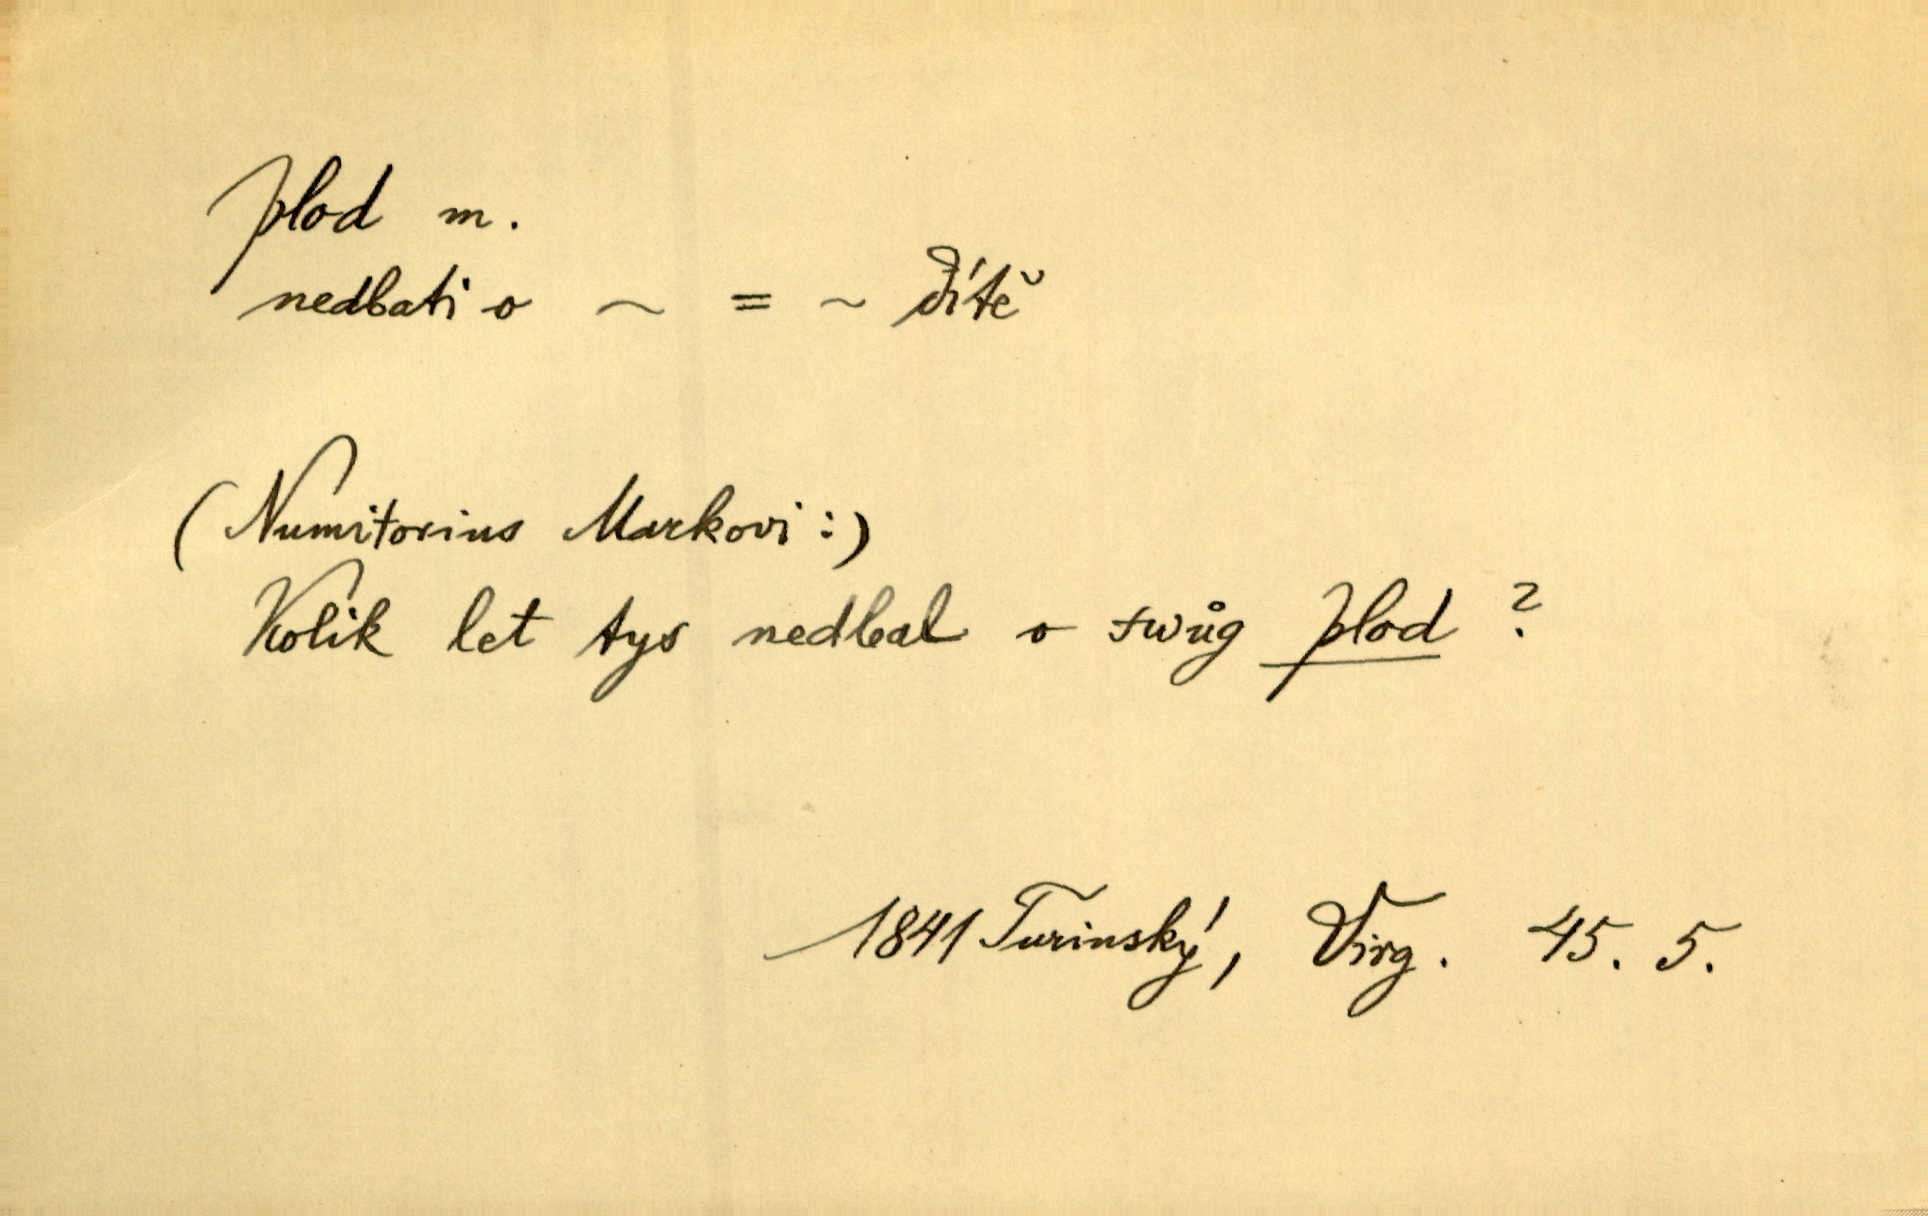 plod m.
nedbati o ~ = ~ dítě
(Numitorius Markovi:)
Kolik let tys nedbal o twůg plod ?
1841 Turinský, Virg. 45. 5.